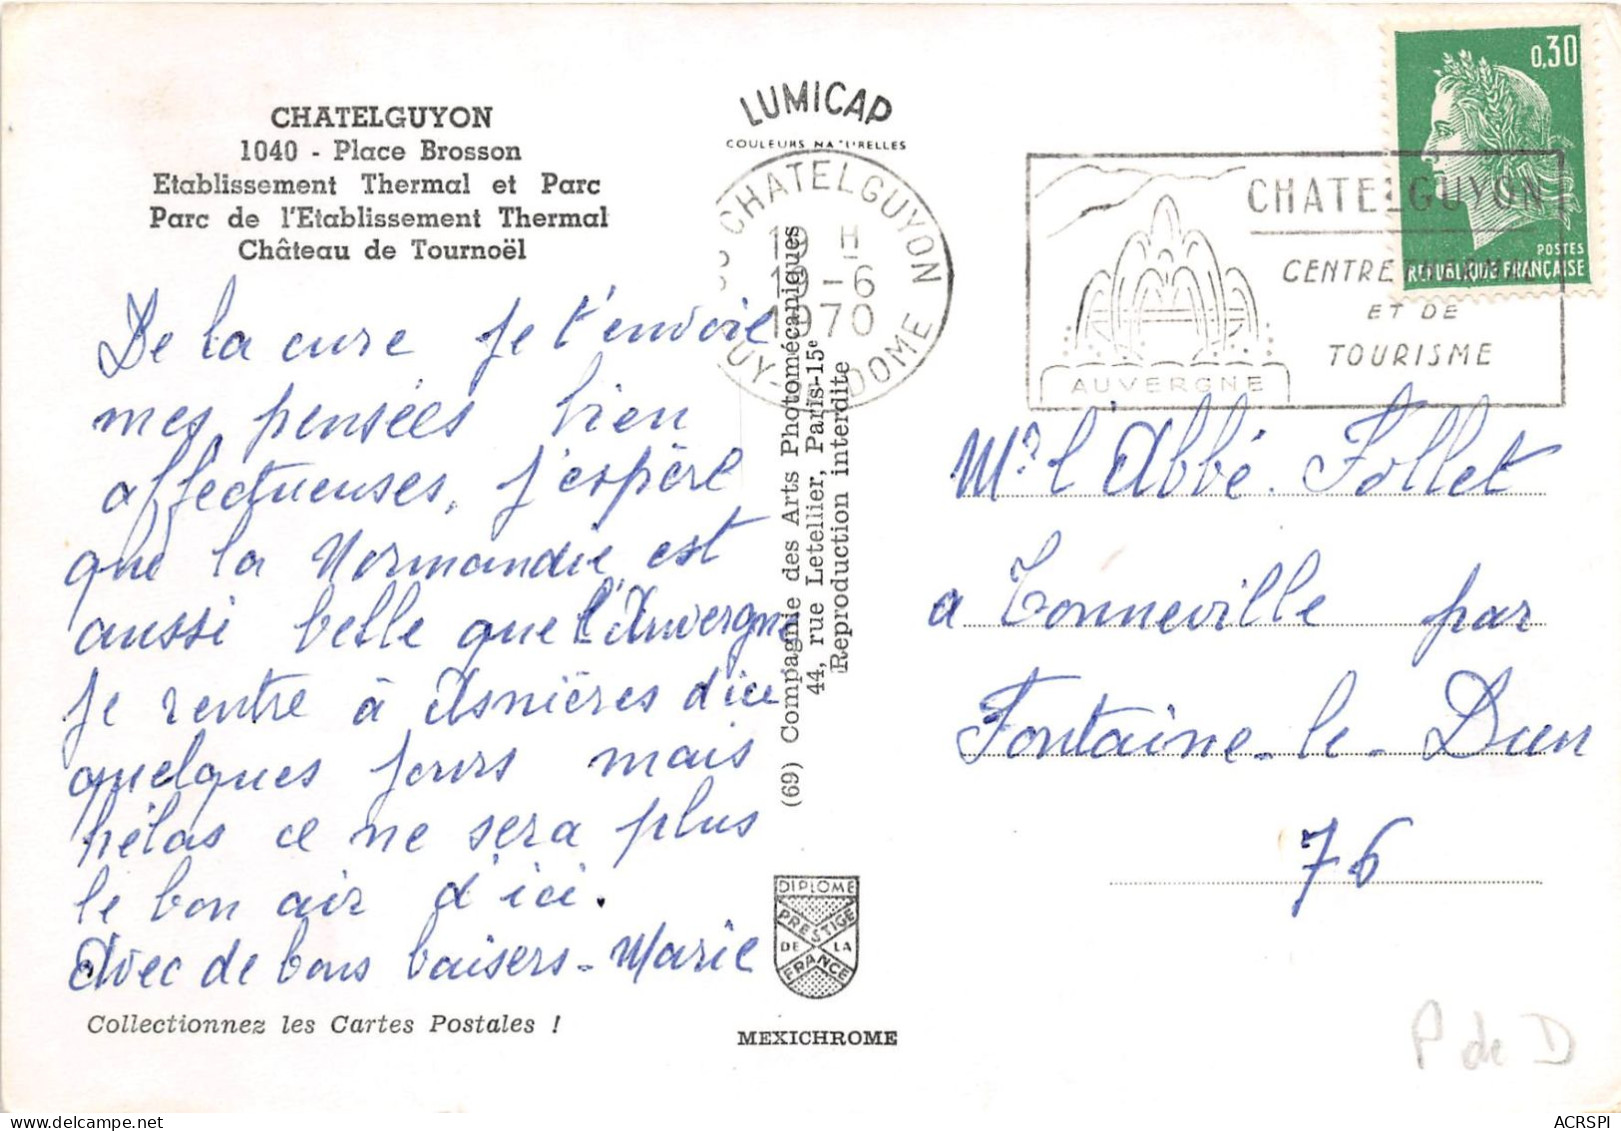 CHATELGUYON
1040 - Place Brosson
Etablissement Thermal et Parc
Parc de l'Etablissement Thermal
Château de Tournoël
De la cure je t'envoie
mes pensées bien
affectueuses, j'espère
que la Normandie est
aussi belle que l'Auvergne
je rentre à Asnières d'ici
quelques jours mais
hélas ce ne sera plus
le bon air d'ici.
Avec de bons baisers - Marie
Collectionnez les Cartes Postales !
LUMICAP
COULEURS NATURELLES
CHATELGUYON
19 H
19 - 6
1970
PUY-DE-DOME
(69) Compagnie des Arts Photomécaniques
44, rue Letellier, Paris-15e
Reproduction interdite
DIPLOME
PRESTIGE
DE LA
FRANCE
MEXICHROME
CHATELGUYON
CENTRE THERMAL
ET DE
TOURISME
AUVERGNE
0,30
POSTES
REPUBLIQUE FRANÇAISE
Mr l'Abbé Follet
a Tonneville par
Fontaine-le-Dun
76
P de D
ACRSPI